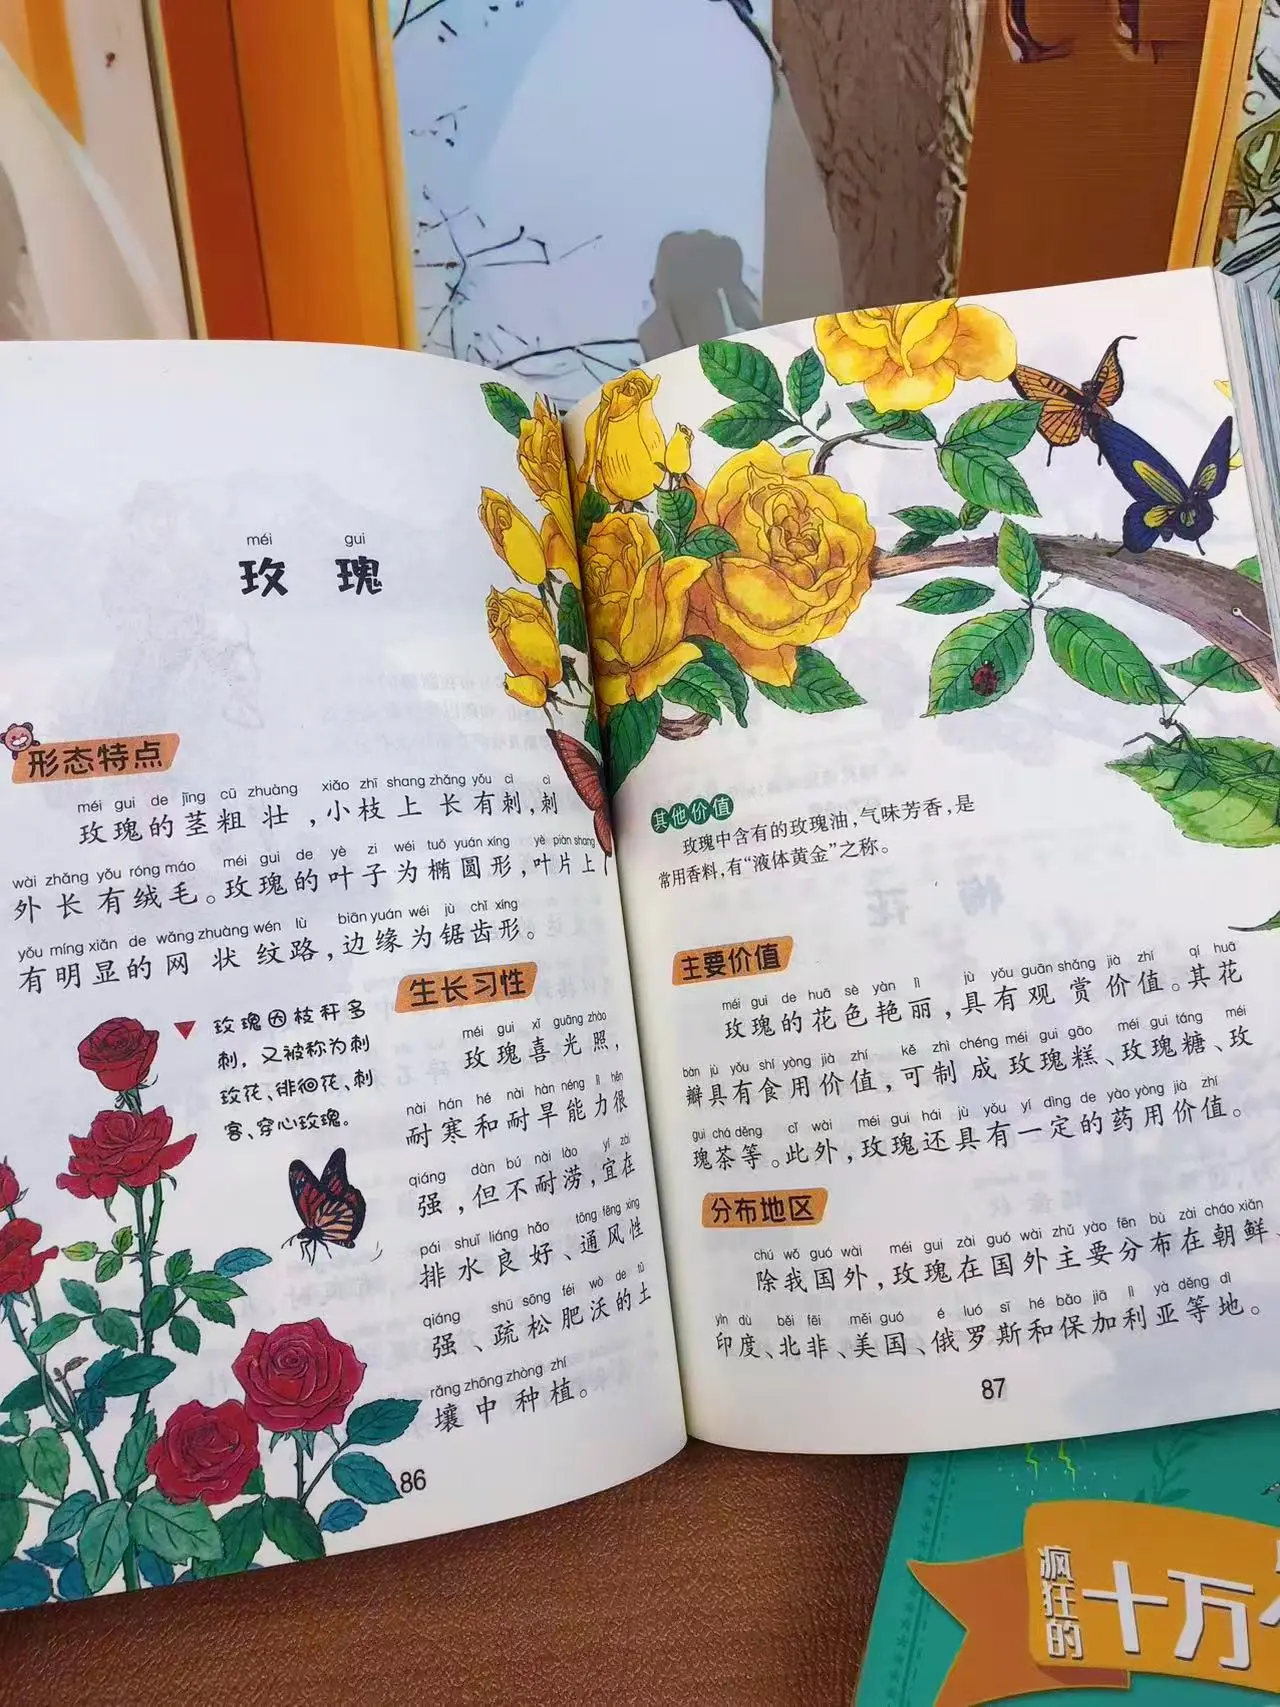 méi gui
玫瑰
形态特点
méi gui de jīng cū zhuàng xiǎo zhī shang zhǎng yǒu cì cì
玫瑰的茎粗壮，小枝上长有刺，刺
wài zhǎng yǒu róng máo méi gui de yè zi wéi tuǒ yuán xíng yè piàn shang
外长有绒毛。玫瑰的叶子为椭圆形，叶片上
yǒu míng xiǎn de wǎng zhuàng wén lù biān yuán wéi jù chǐ xíng
有明显的网状纹路，边缘为锯齿形。
玫瑰因枝秆多
刺，又被称为刺
玫花、徘徊花、刺
客、穿心玫瑰。
生长习性
méi gui xǐ guāng zhào
玫瑰喜光照，
nài hán hé nài hàn néng lì hěn
耐寒和耐旱能力很
qiáng dàn bú nài lào yí zài
强，但不耐涝，宜在
pái shuǐ liáng hǎo tōng fēng xìng
排水良好、通风性
qiáng shū sōng féi wò de tǔ
强、疏松肥沃的土
rǎng zhōng zhòng zhí
壤中种植。
86
其他价值
玫瑰中含有的玫瑰油，气味芳香，是
常用香料，有“液体黄金”之称。
主要价值
méi gui de huā sè yàn lì jù yǒu guān shǎng jià zhí qí huā
玫瑰的花色艳丽，具有观赏价值。其花
bàn jù yǒu shí yòng jià zhí kě zhì chéng méi gui gāo méi gui táng méi
瓣具有食用价值，可制成玫瑰糕、玫瑰糖、玫
gui chá děng cǐ wài méi gui hái jù yǒu yí dìng de yào yòng jià zhí
瑰茶等。此外，玫瑰还具有一定的药用价值。
分布地区
chú wǒ guó wài méi gui zài guó wài zhǔ yào fēn bù zài cháo xiǎn
除我国外，玫瑰在国外主要分布在朝鲜、
yìn dù běi fēi měi guó é luó sī hé bǎo jiā lì yà děng dì
印度、北非、美国、俄罗斯和保加利亚等地。
87
疯狂的
十万